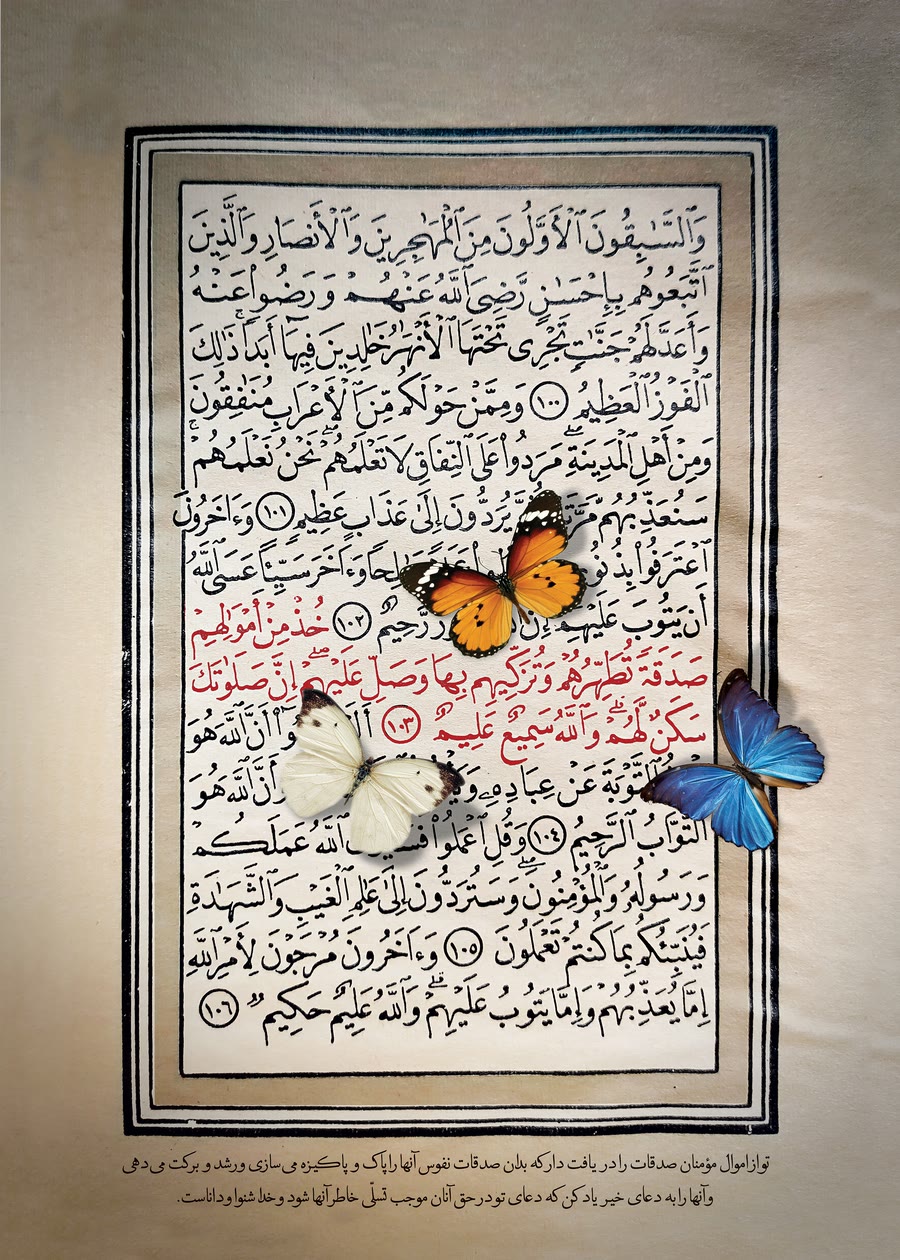 وَٱلسَّـٰبِقُونَ ٱلْأَوَّلُونَ مِنَ ٱلْمُهَـٰجِرِينَ وَٱلْأَنصَارِ وَٱلَّذِينَ
ٱتَّبَعُوهُم بِإِحْسَـٰنٍ رَّضِىَ ٱللَّهُ عَنْهُمْ وَرَضُوا۟ عَنْهُ
وَأَعَدَّ لَهُمْ جَنَّـٰتٍ تَجْرِى تَحْتَهَا ٱلْأَنْهَـٰرُ خَـٰلِدِينَ فِيهَآ أَبَدًا ۚ ذَٰلِكَ
ٱلْفَوْزُ ٱلْعَظِيمُ ١٠٠ وَمِمَّنْ حَوْلَكُم مِّنَ ٱلْأَعْرَابِ مُنَـٰفِقُونَ ۖ
وَمِنْ أَهْلِ ٱلْمَدِينَةِ ۖ مَرَدُوا۟ عَلَى ٱلنِّفَاقِ لَا تَعْلَمُهُمْ ۖ نَحْنُ نَعْلَمُهُمْ ۚ
سَنُعَذِّبُهُم يُرَدُّونَ إِلَىٰ عَذَابٍ عَظِيمٍ ١٠١ وَءَاخَرُونَ
ٱعْتَرَفُوا۟ وَءَاخَرَ سَيِّئًا عَسَى ٱللَّهُ
أَن يَتُوبَ عَلَيْهِمْ ۚ إِنَّ رَّحِيمٌ ١٠٢ خُذْ مِنْ أَمْوَٰلِهِمْ
صَدَقَةً تُطَهِّرُهُمْ وَتُزَكِّيهِم بِهَا وَصَلِّ عَلَيْهِمْ ۖ إِنَّ صَلَوٰتَكَ
سَكَنٌ لَّهُمْ ۗ وَٱللَّهُ سَمِيعٌ عَلِيمٌ ١٠٣ أَنَّ ٱللَّهَ هُوَ
ٱلتَّوْبَةَ عَنْ عِبَادِهِۦ وَأَنَّ ٱللَّهَ هُوَ
ٱلتَّوَّابُ ٱلرَّحِيمُ ١٠٤ وَقُلِ ٱعْمَلُوا۟ ٱللَّهُ عَمَلَكُمْ
وَرَسُولُهُۥ وَٱلْمُؤْمِنُونَ ۖ وَسَتُرَدُّونَ إِلَىٰ عَـٰلِمِ ٱلْغَيْبِ وَٱلشَّهَـٰدَةِ
فَيُنَبِّئُكُم بِمَا كُنتُمْ تَعْمَلُونَ ١٠٥ وَءَاخَرُونَ مُرْجَوْنَ لِأَمْرِ ٱللَّهِ
إِمَّا يُعَذِّبُهُمْ وَإِمَّا يَتُوبُ عَلَيْهِمْ ۗ وَٱللَّهُ عَلِيمٌ حَكِيمٌ ١٠٦
تو از اموال مؤمنان صدقات را دریافت دار که بدان صدقات نفوس آنها را پاک و پاکیزه می‌سازی و رشد و برکت می‌دهی
و آنها را به دعای خیر یاد کن که دعای تو در حق آنان موجب تسلّی خاطر آنها شود و خدا شنوا و داناست.